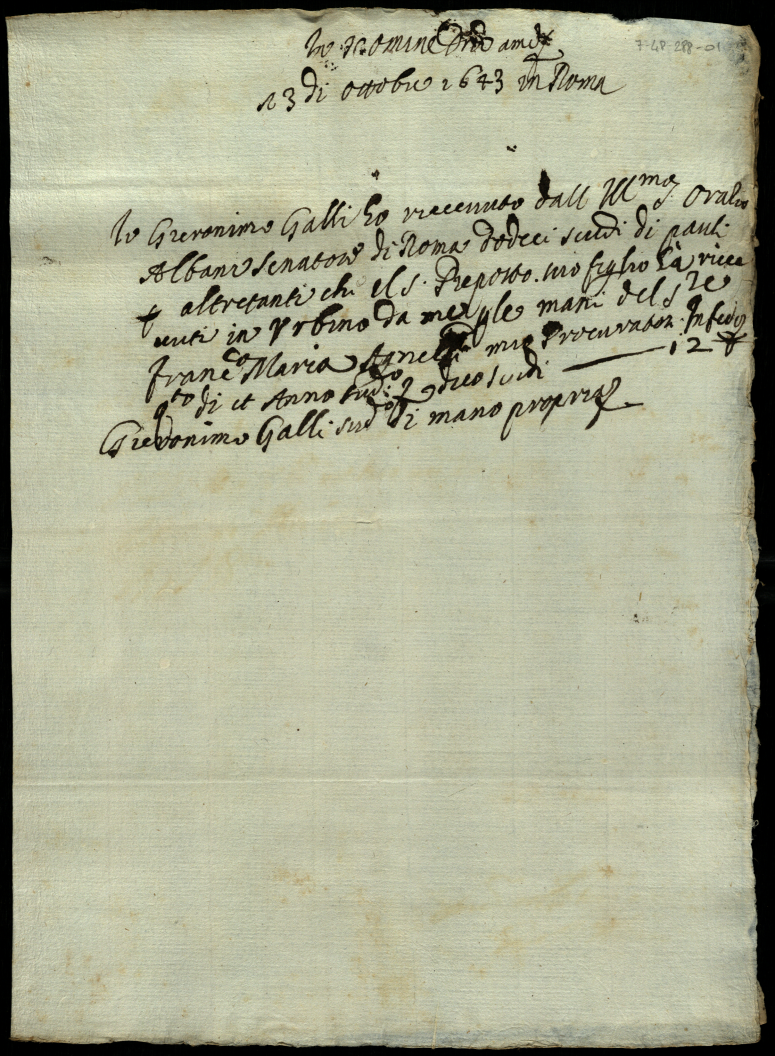 In Nomine Dni amen
7-48-288-01
A 3 di ottobre 1643 in Roma
Io Gieronimo Galli ho riceuuto dall Ill.mo Sr. Oratio
Albani Senatore di Roma dodeci scudi di pauli
p altretanti che il S. Preposto suo figlio hà rice
uuti in Vrbino da me p le mani del Sre
Franc.o Maria Agnelli mio Procurator. In fede
q.to di et Anno sud.o dico scudi — 12
Gieronimo Galli sud.o di mano propria